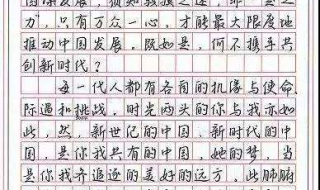 推动中国发展，既如是，何不携手共
创新时代？
每一代人都有各自的机遇与使命、
际遇和挑战，时光两头的你与我亦如
此，然，新世纪的中国，新时代的中
国，是你我共有的中国，她的梦，当
是你我齐追逐的美好的远方，此肺腑